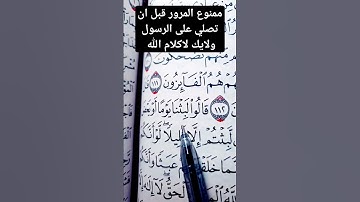 ممنوع المرور قبل ان
تصلي على الرسول
ولايك لاكلام الله
تَضْحَكُونَ
هُمُ ٱلْفَآئِزُونَ ١١١
١١٢ قَالُوا۟ لَبِثْنَا يَوْمًا أَوْ
لَّبِثْتُمْ إِلَّا قَلِيلًا لَّوْ أَنَّكُمْ
عَبَثًا وَأَنَّكُمْ
ٱلْحَقُّ لَآ إِلَٰهَ